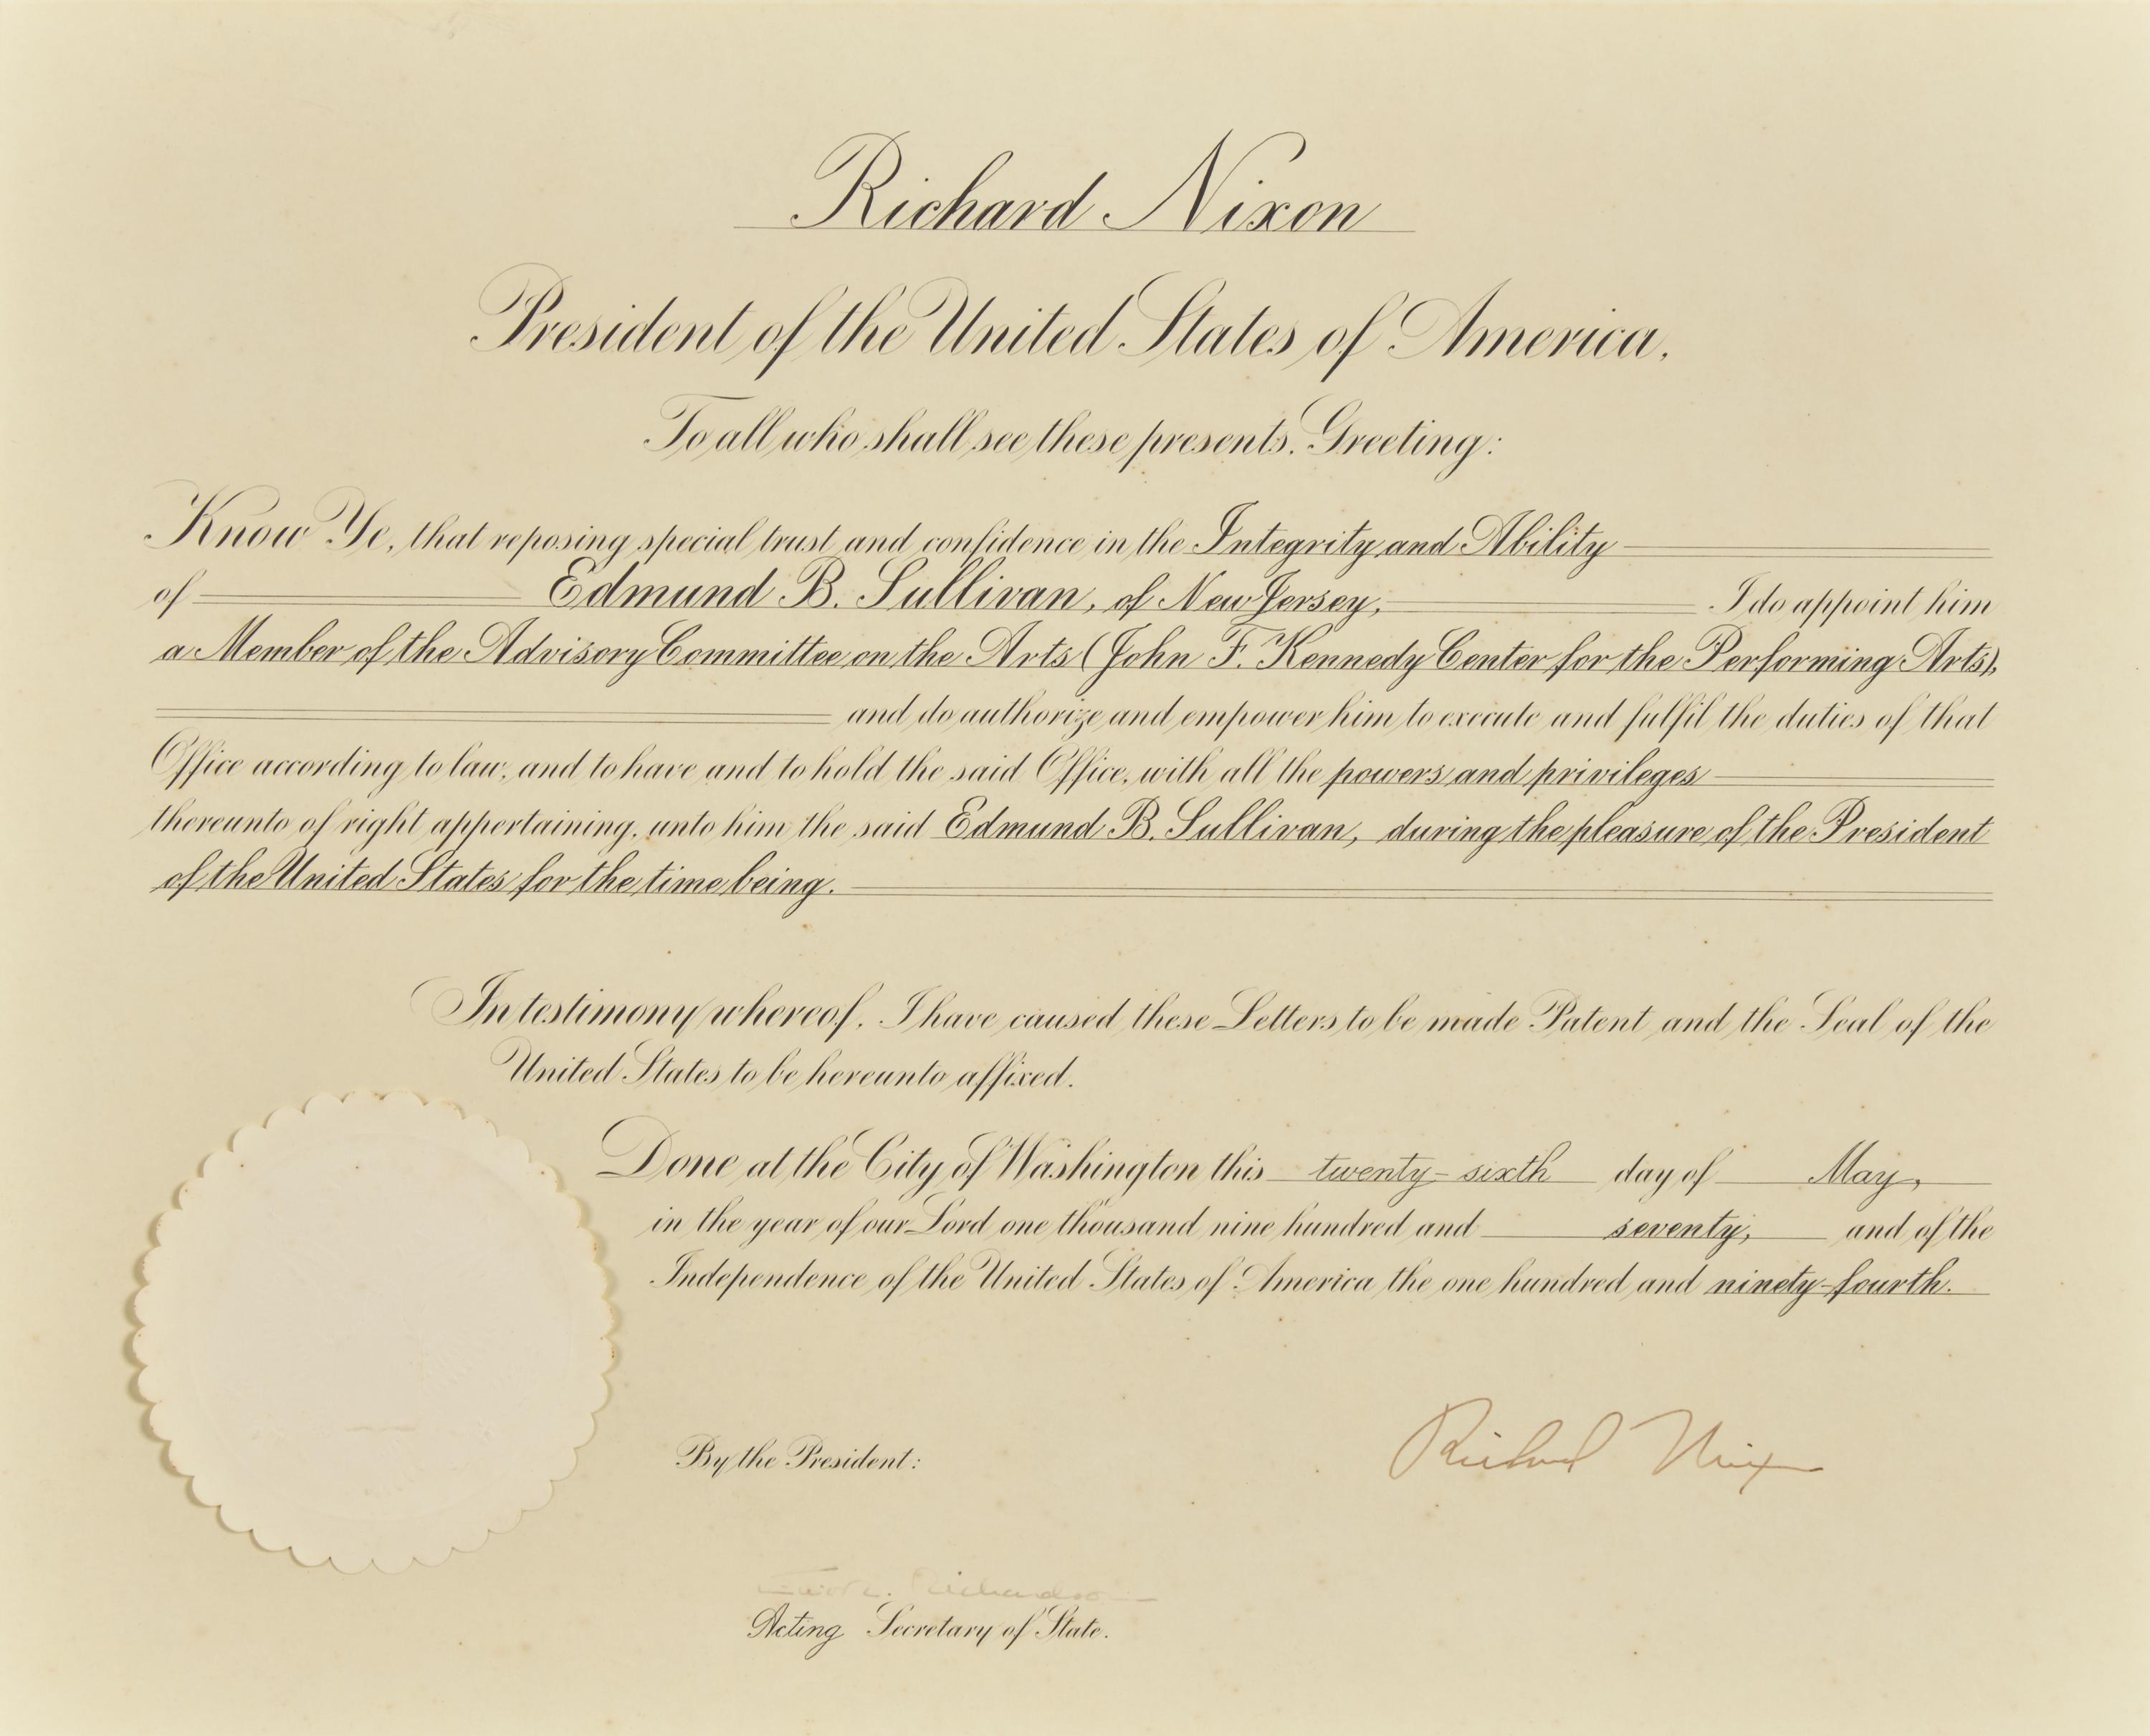 Richard Nixon
President of the United States of America.
To all who shall see these presents, Greeting:
Know Ye, that reposing special trust and confidence in the Integrity and Ability
of Edmund B. Sullivan, of New Jersey, I do appoint him
a Member of the Advisory Committee on the Arts (John F. Kennedy Center for the Performing Arts),
and do authorize and empower him to execute and fulfil the duties of that
Office according to law, and to have and to hold the said Office, with all the powers and privileges
thereunto of right appertaining, unto him the said Edmund B. Sullivan, during the pleasure of the President
of the United States for the time being.
In testimony whereof, I have caused these Letters to be made Patent and the Seal of the
United States to be hereunto affixed.
Done at the City of Washington this twenty-sixth day of May,
in the year of our Lord one thousand nine hundred and seventy, and of the
Independence of the United States of America the one hundred and ninety-fourth.
Richard Nixon
By the President:
Richardson
Acting Secretary of State.